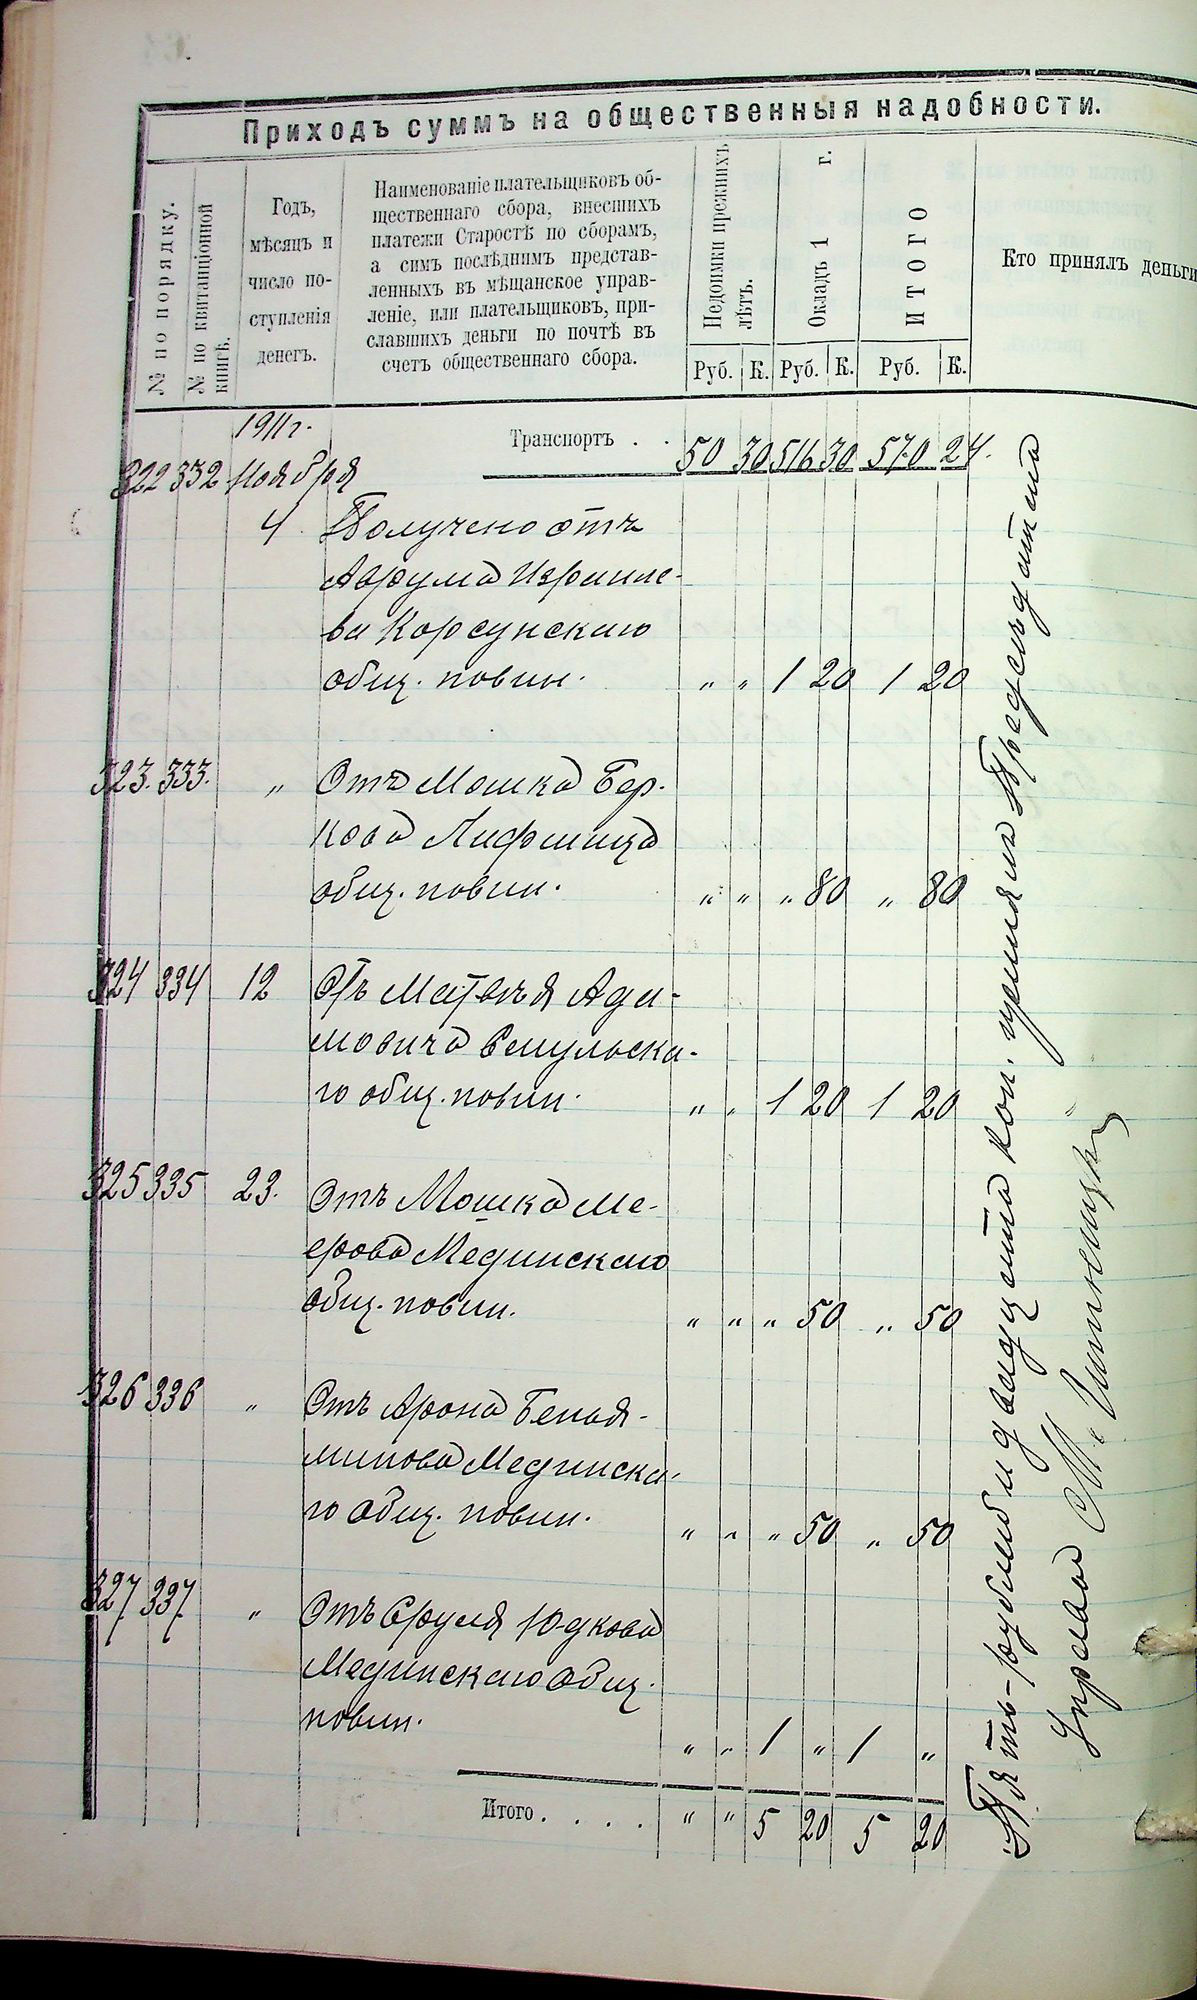 Приходъ суммъ на общественныя надобности.
№ по порядку.
№ по квитанціонной
книгѣ.
Годъ,
мѣсяцъ и
число по-
ступленія
денегъ.
Наименованіе плательщиковъ об-
щественнаго сбора, внесшихъ
платежи Старостѣ по сборамъ,
а симъ послѣднимъ представ-
ленныхъ въ мѣщанское управ-
леніе, или плательщиковъ, при-
славшихъ деньги по почтѣ въ
счетъ общественнаго сбора.
Недоимки прежнихъ
лѣтъ.
Окладъ 1 г.
ИТОГО
Кто принялъ деньги
Руб. К. Руб. К. Руб. К.
1911 г.
Транспортъ . . 50 30 516 30 570 24.
322 332 Ноября
4 Получено отъ
Аврума Израиле-
ва Корсунскаго
общ. повин. " " 1 20 1 20
323. 333. " Отъ Мошка Бер-
кова Лифшица
общ. повин. " " " 80 " 80
324 334 12 Отъ Матвѣя Ада-
мовича Смульска-
го общ. повин. " " 1 20 1 20
325 335 23. Отъ Мошка Ме-
ерова Мединскаго
общ. повин. " " " 50 " 50
326 336 " Отъ Арона Бенья-
минова Мединска-
го общ. повин. " " " 50 " 50
327 337 " Отъ Сруля Юдкова
Мединскаго общ.
повин. " " 1 " 1 "
Итого . . . . " " 5 20 5 20
Пять рублей двадцать коп. принялъ Предсѣдатель
Управы М.